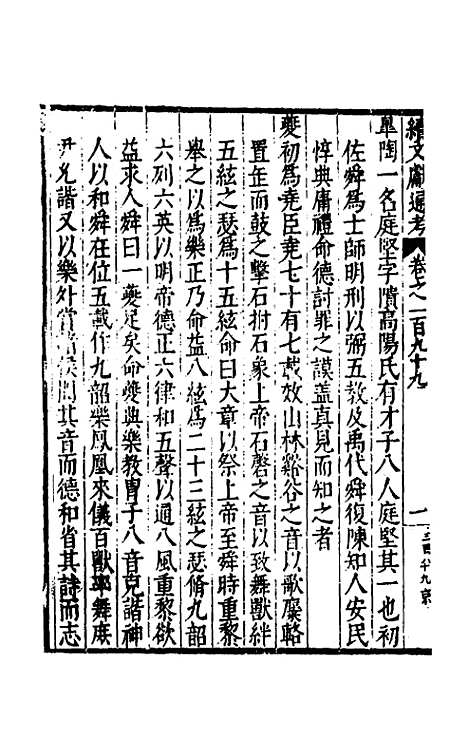 續文獻通考 卷之一百九十九 一
皐陶一名庭堅字隤高陽氏有才子八人庭堅其一也初
佐舜為士師明刑以弼五敎及禹代舜復陳知人安民
惇典庸禮命德討罪之謨蓋真見而知之者
夔初為堯臣堯七十有七載效山林谿谷之音以歌麋䩭
置缶而鼓之擊石拊石象上帝石磬之音以致舞獸絆
五絃之瑟為十五絃命曰大章以祭上帝至舜時重黎
舉之以為樂正乃命益八絃為二十三絃之瑟脩九韶
六列六英以明帝德正六律和五聲以通八風重黎欲
益求人舜曰一夔足矣命夔典樂敎胄子八音克諧神
人以和舜在位五載作九韶樂鳳凰來儀百獸率舞庶
尹允諧又以樂外賞諸侯聞其音而德和省其詩而志